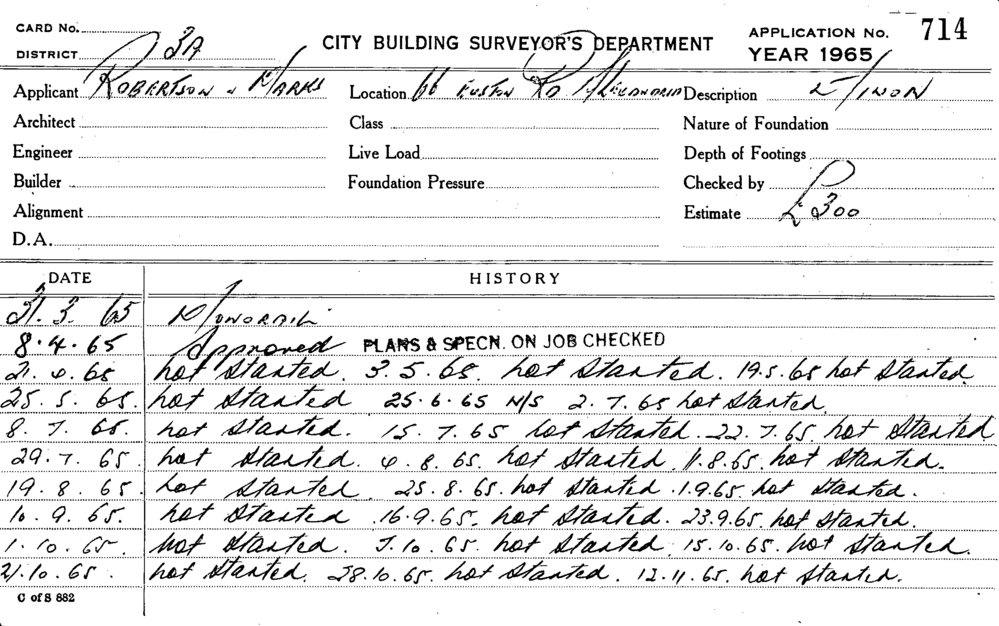 CARD No.
DISTRICT 3A
CITY BUILDING SURVEYOR'S DEPARTMENT
APPLICATION No. 714
YEAR 1965
Applicant ROBERTSON & MARKS Location 66 EUSTON RD ALEXANDRIA Description
Architect Class Nature of Foundation
Engineer Live Load Depth of Footings
Builder Foundation Pressure Checked by
Alignment Estimate £300
D.A.
DATE HISTORY
31. 3. 65
8.4.65 Approved PLANS & SPECN. ON JOB CHECKED
21. 4. 65 not started. 3.5.65. not started. 19.5.65 not started.
25. 5. 65. not started 25.6.65 N/S 2.7.65 not started.
8. 7. 65. not started. 15.7.65 not started. 22.7.65. not started
29.7.65 not started. 4.8.65. not started. 11.8.65. not started.
19.8.65. not started. 25.8.65. not started. 1.9.65. not started.
10.9.65. not started. 16.9.65. not started. 23.9.65. not started.
1.10.65. not started. 7.10.65. not started. 15.10.65. not started.
21.10.65. not started. 28.10.65. not started. 12.11.65. not started.
C of S 882